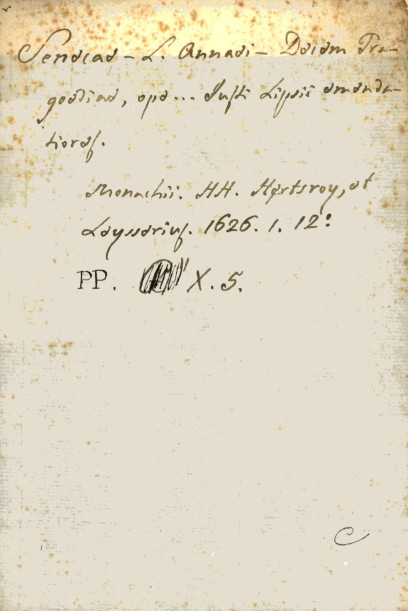 Senecae – L. Annaei – Decem Tra-
goediae, ope... Justi Lipsii emenda-
tiores.
Monachii. HH. Hertsroy, et
Leysserius. 1626. 1. 12°
PP. X. 5.
C